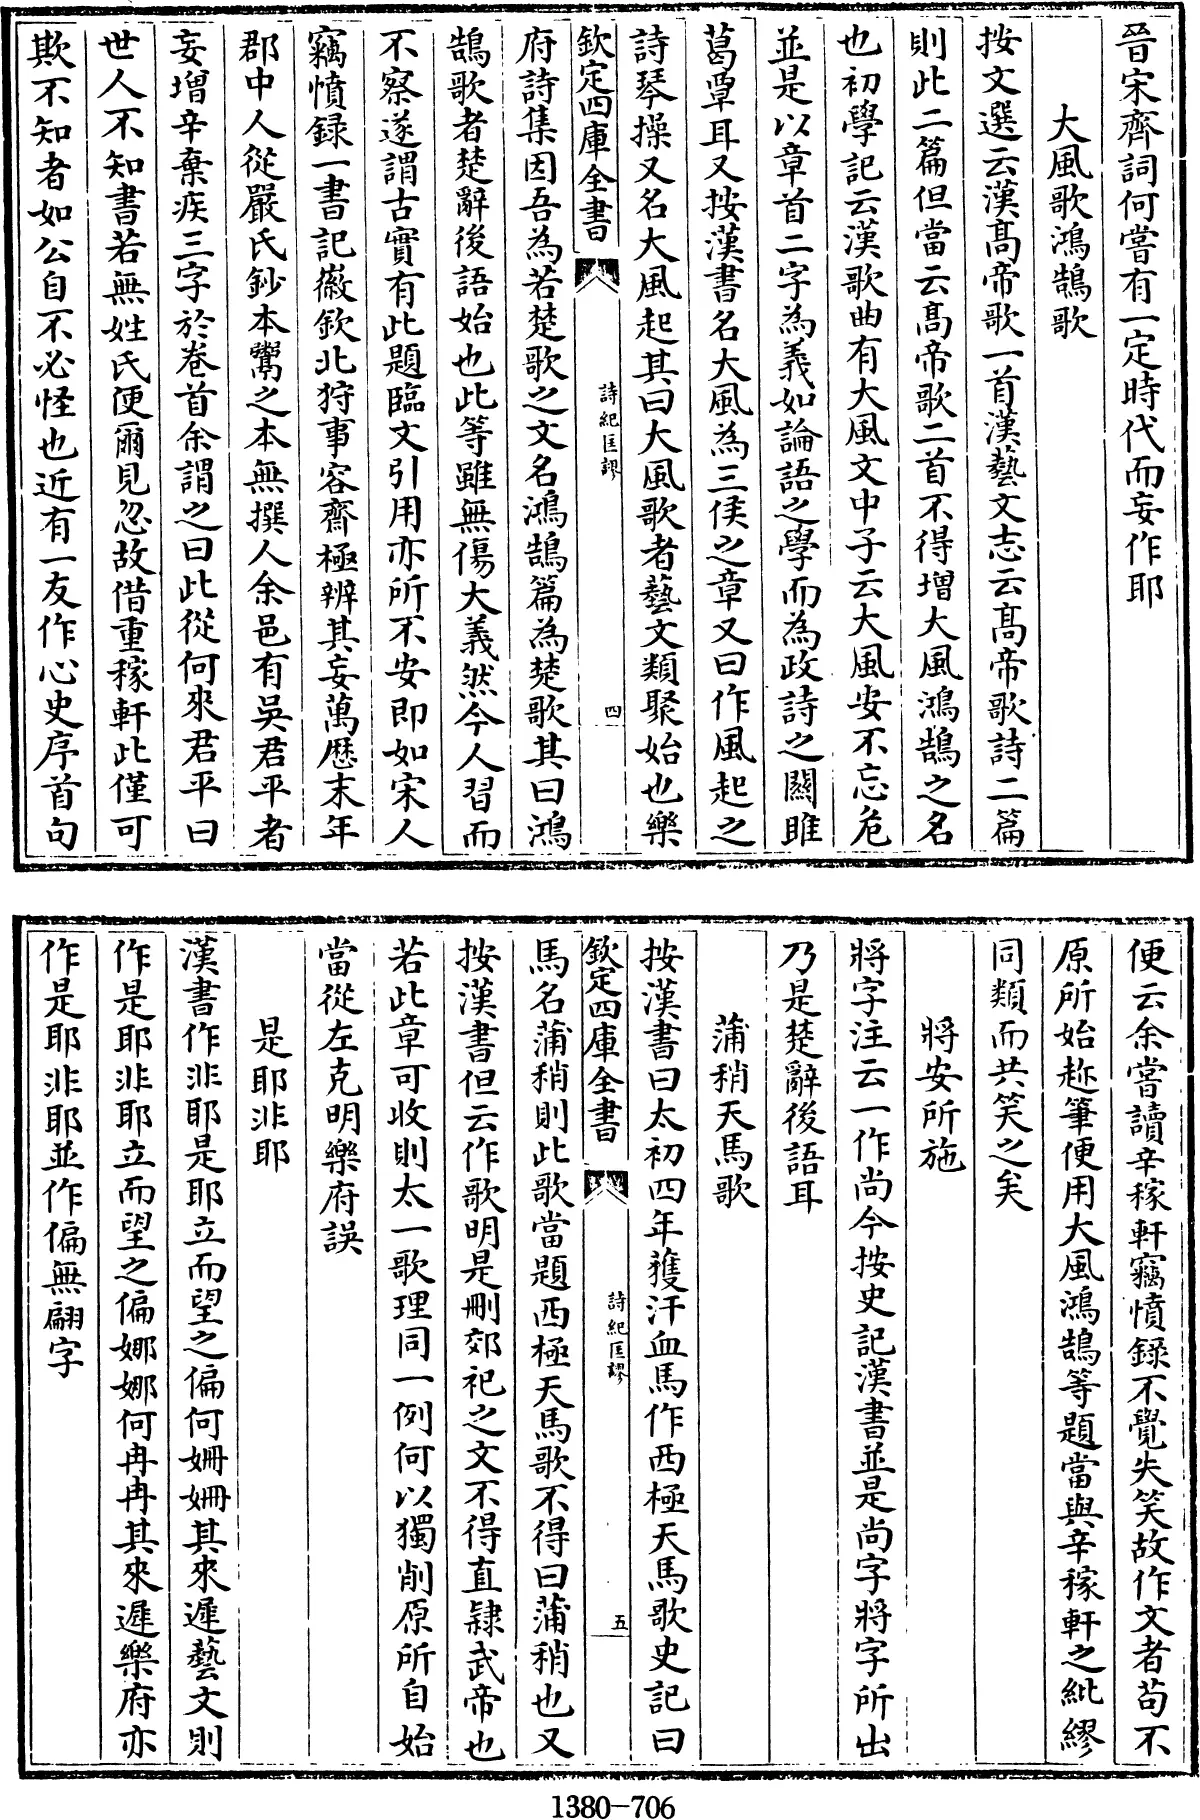 晉宋齊詞何嘗有一定時代而妄作耶
大風歌鴻鵠歌
按文選云漢髙帝歌一首漢藝文志云髙帝歌詩二篇
則此二篇但當云髙帝歌二首不得增大風鴻鵠之名
也初學記云漢歌曲有大風文中子云大風安不忘危
並是以章首二字為義如論語之學而為政詩之關雎
葛覃耳又按漢書名大風為三侯之章又曰作風起之
詩琴操又名大風起其曰大風歌者藝文類聚始也樂
欽定四庫全書
詩紀匡謬
四
府詩集因吾為若楚歌之文名鴻鵠篇為楚歌其曰鴻
鵠歌者楚辭後語始也此等雖無傷大義然今人習而
不察遂謂古實有此題臨文引用亦所不安即如宋人
竊憤録一書記徽欽北狩事容齋極辨其妄萬歴末年
郡中人從嚴氏鈔本鬻之本無撰人余邑有吳君平者
妄增辛棄疾三字於卷首余謂之曰此從何來君平曰
世人不知書若無姓氏便爾見忽故借重稼軒此僅可
欺不知者如公自不必怪也近有一友作心史序首句
便云余嘗讀辛稼軒竊憤録不覺失笑故作文者苟不
原所始趂筆便用大風鴻鵠等題當與辛稼軒之紕繆
同類而共笑之矣
將安所施
將字注云一作尚今按史記漢書並是尚字將字所出
乃是楚辭後語耳
蒲稍天馬歌
按漢書曰太初四年獲汗血馬作西極天馬歌史記曰
欽定四庫全書
詩紀匡謬
五
馬名蒲稍則此歌當題西極天馬歌不得曰蒲稍也又
按漢書但云作歌明是刪郊祀之文不得直隷武帝也
若此章可收則太一歌理同一例何以獨削原所自始
當從左克明樂府誤
是耶非耶
漢書作非耶是耶立而望之偏何姍姍其來遲藝文則
作是耶非耶立而望之偏娜娜何冉冉其來遲樂府亦
作是耶非耶並作偏無翩字
1380-706